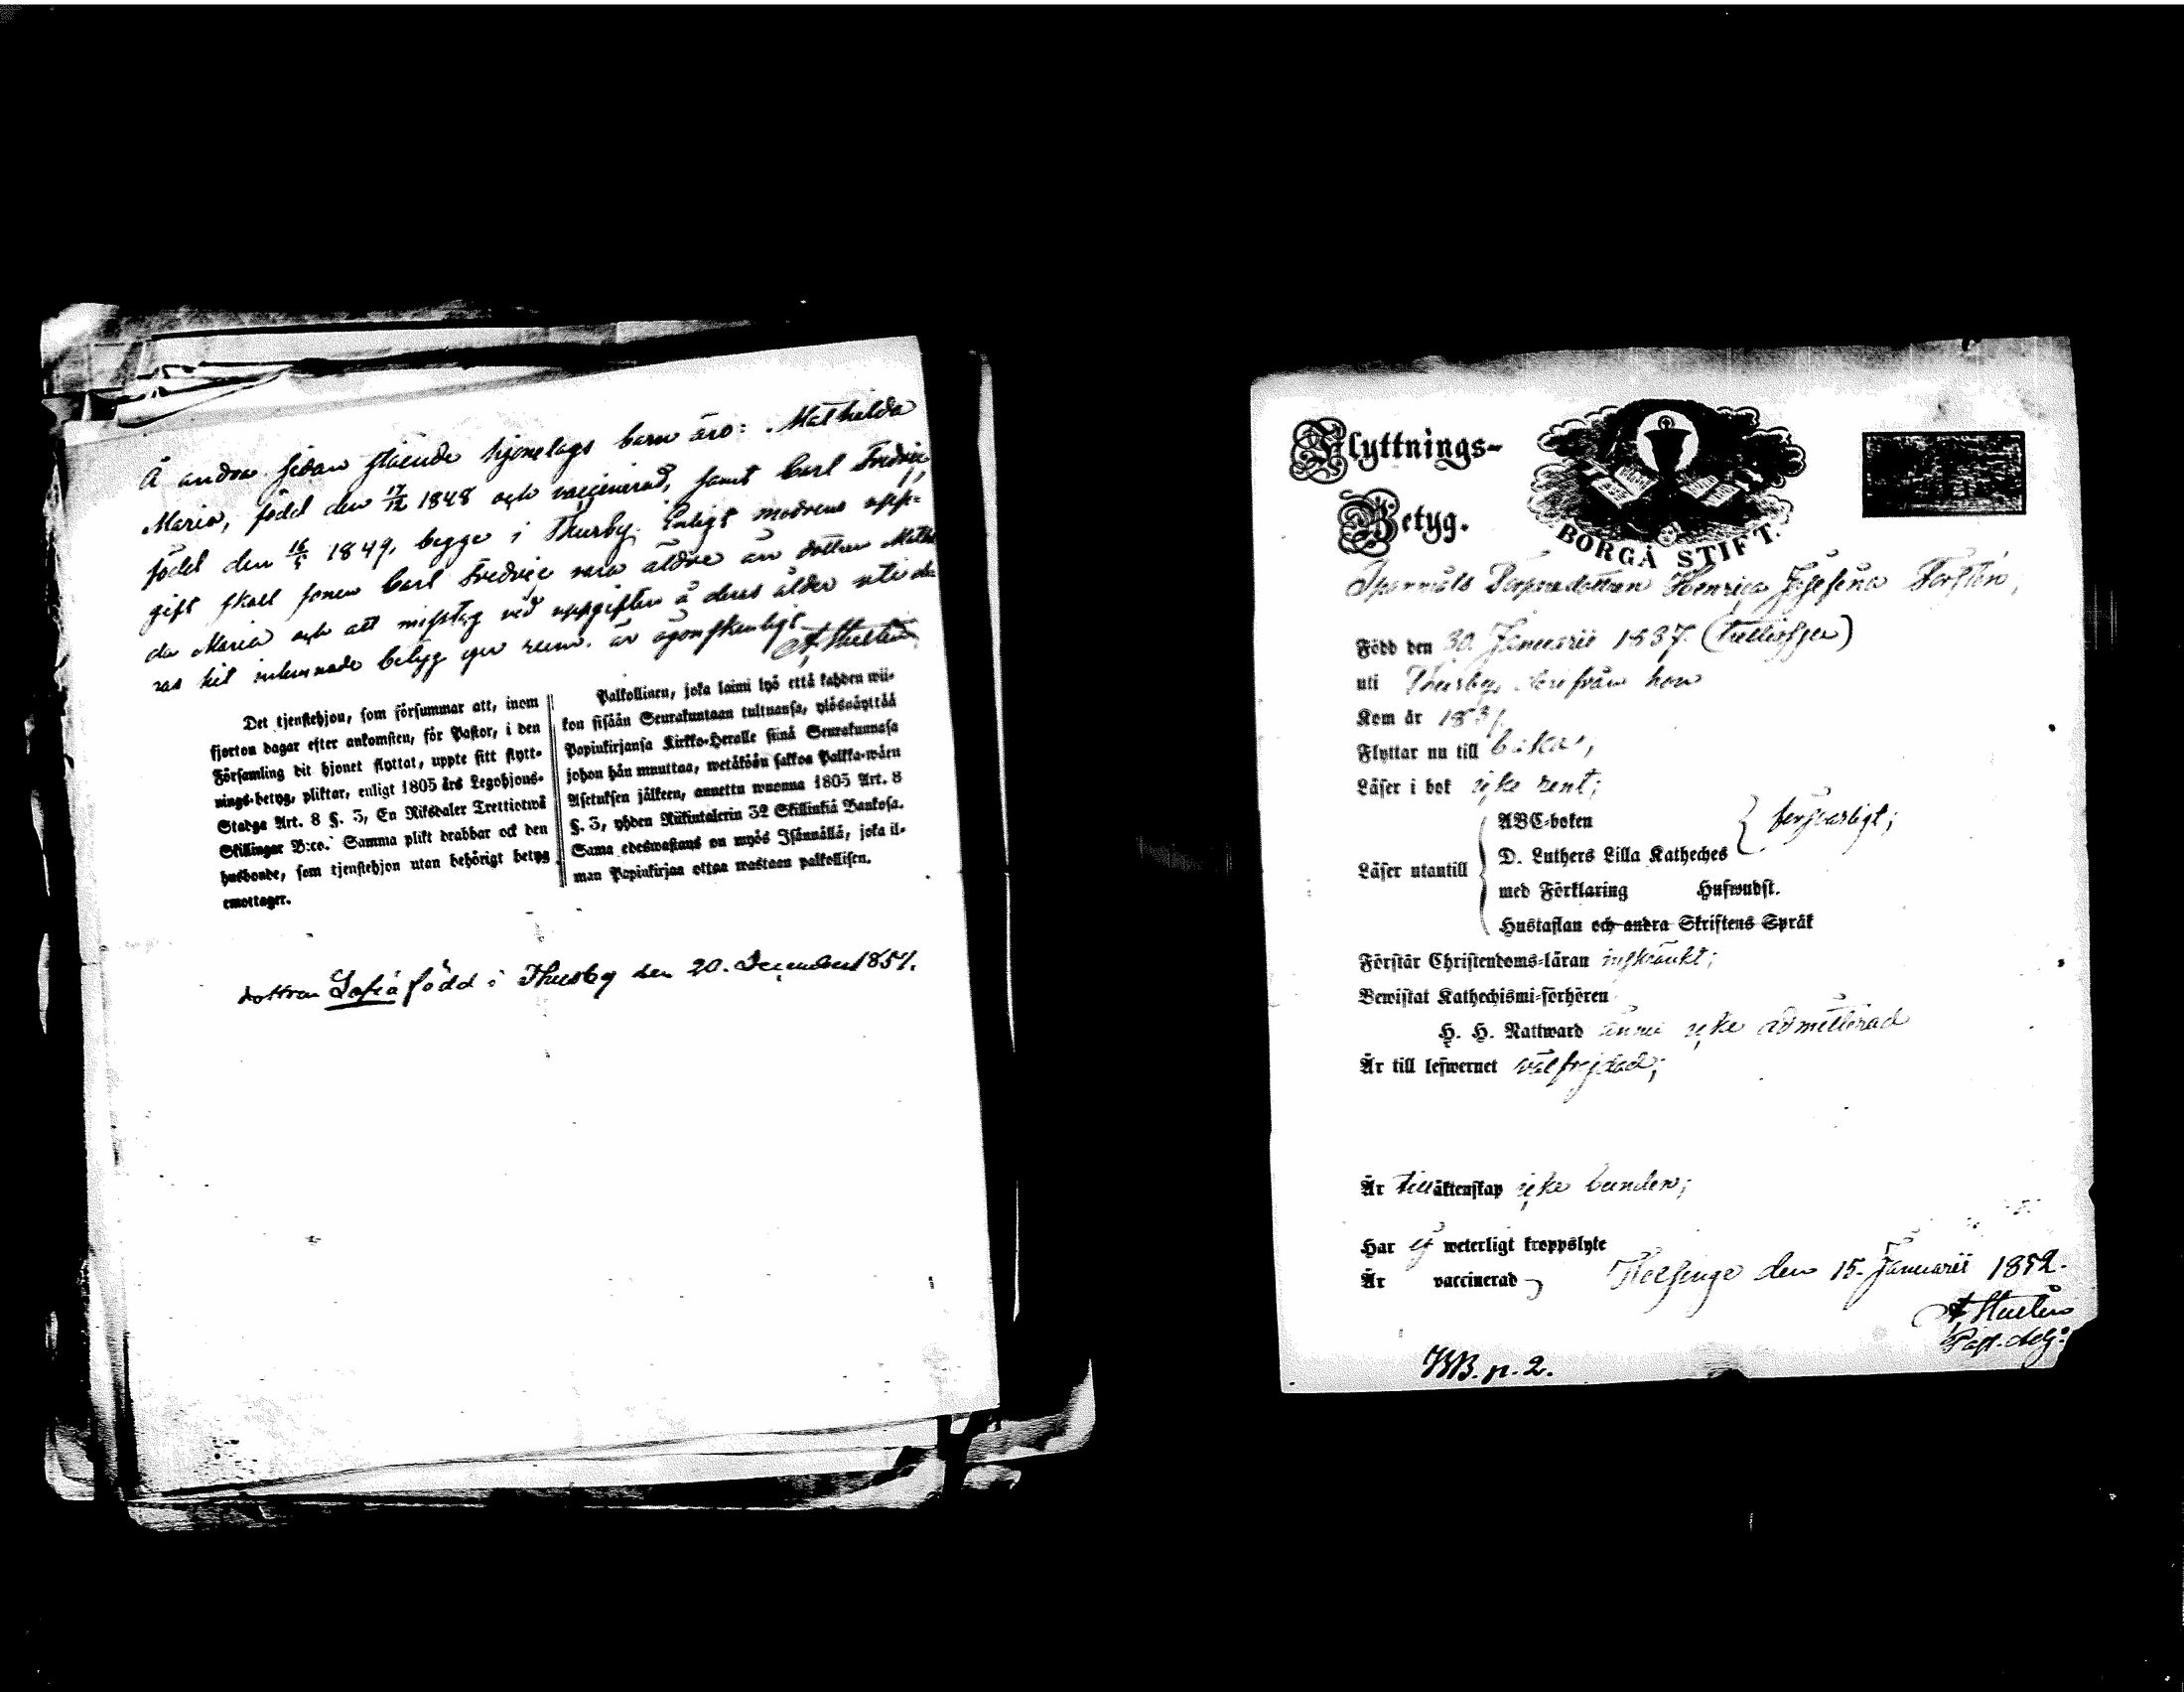 Å andra sidan stående hjonelags barn äro: Mathilda
Maria, född den 17/12 1848 och vaccinerad, samt Carl Fredric,
född den 16/5 1849, begge i Thusby. Enligt modrens upp-
gift skall sonen Carl Fredric vara äldre än dottren Mathil
da Maria och att misstag vid uppgiften å deras ålder uti de
ras hit inlemnade betyg ägt rum, är ögonskenligt
Det tjenstehjon, som försummar att, inom
fjorton dagar efter ankomsten, för Pastor, i den
Församling dit hjonet flyttat, uppte sitt flytt-
nings-betyg, pliktar, enligt 1805 års Legohjons-
Stadga Art. 8 §. 3, En Riksdaler Trettiotwå
Skillingar B:co. Samma plikt drabbar ock den
husbonde, som tjenstehjon utan behörigt betyg
emottager.
Palkollinen, joka laimi lyö että kahden wii-
kon sisään Seurakuntaan tultuansa, ylösnäyttää
Papinkirjansa Kirkko-Heralle siinä Seurakunnasa
johon hän muuttaa, wetäköön sakkoa Palkka-wäen
Asetuksen jälkeen, annettu wuonna 1805 Art. 8
§. 3, yhden Riikintalerin 32 Skillinkiä Bankosa.
Sama edeswastaus on myös Isännällä, joka il-
man Papinkirjaa ottaa wastaan palkollisen.
dottren Sofia född i Thusby den 20. December 1851.
Flyttnings-
Betyg.
BORGÅ STIFT.
Torparedottren Henrica Josefina Forstén,
Född den 30 Januarii 1837.
uti Thusby, derifrån hon
Kom år 1851.
Flyttar nu till baka,
Läser i bok icke rent;
Läser utantill
ABC-boken
D. Luthers Lilla Katheches
försvarligt;
med Förklaring Hufwudst.
Hustaflan och andra Skriftens Språk
Förstår Christendoms-läran inskränkt;
Bewistat Kathechismi-förhören
H. H. Nattward ännu icke admitterad
Är till lefwernet välfrejdad;
Är till äktenskap icke bunden;
Har ej weterligt kroppslyte
Är vaccinerad
Helsinge den 15. Januarii 1852.
KB. p. 2.